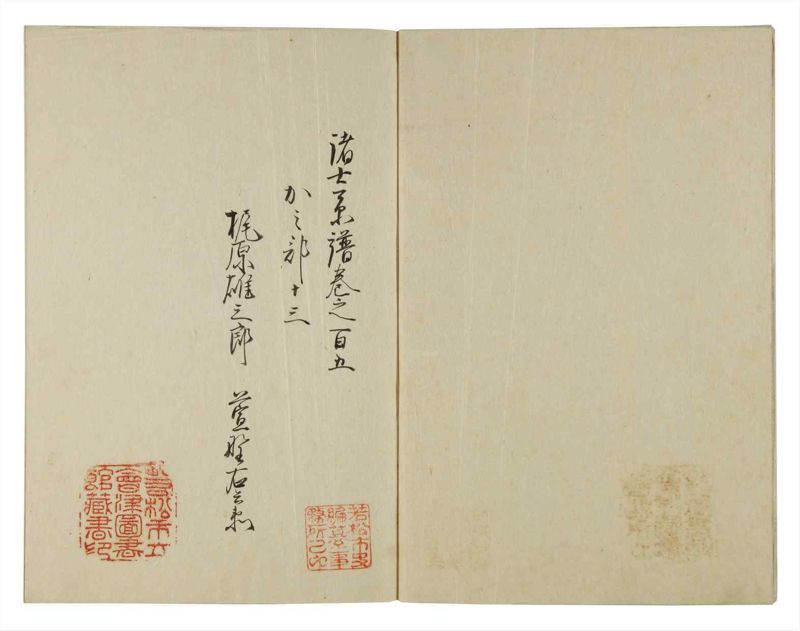 諸士系譜巻之百五
か之部十三
梶原雄三郎　萱野右兵衛
若松市史
編纂事
務所之印
若松市立
會津圖書
館藏書印